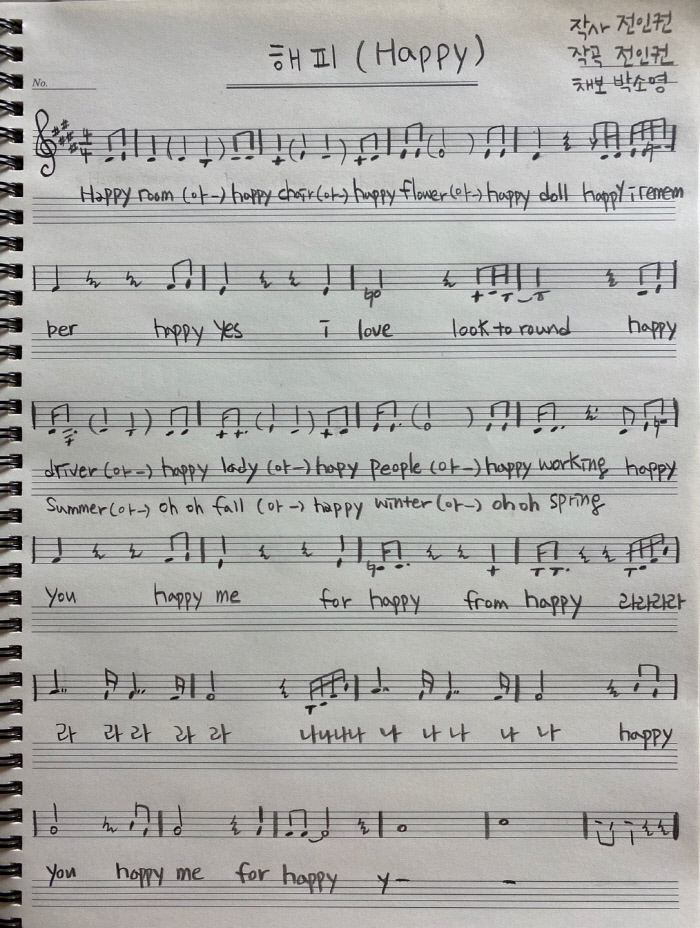 해피 (Happy)
작사 전인권
작곡 전인권
채보 박소영
No.
4
4
Happy room (아-) happy chair (아-) happy flower (아-) happy doll happy i remem
ber happy yes i love look to round happy
driver (아-) happy lady (아-) hapy people (아-) happy working happy
Summer (아-) oh oh fall (아-) happy winter (아-) oh oh spring
you happy me for happy from happy 라라라라
라 라 라 라 라 나나나나 나 나 나 나 나 happy
you happy me for happy y- -